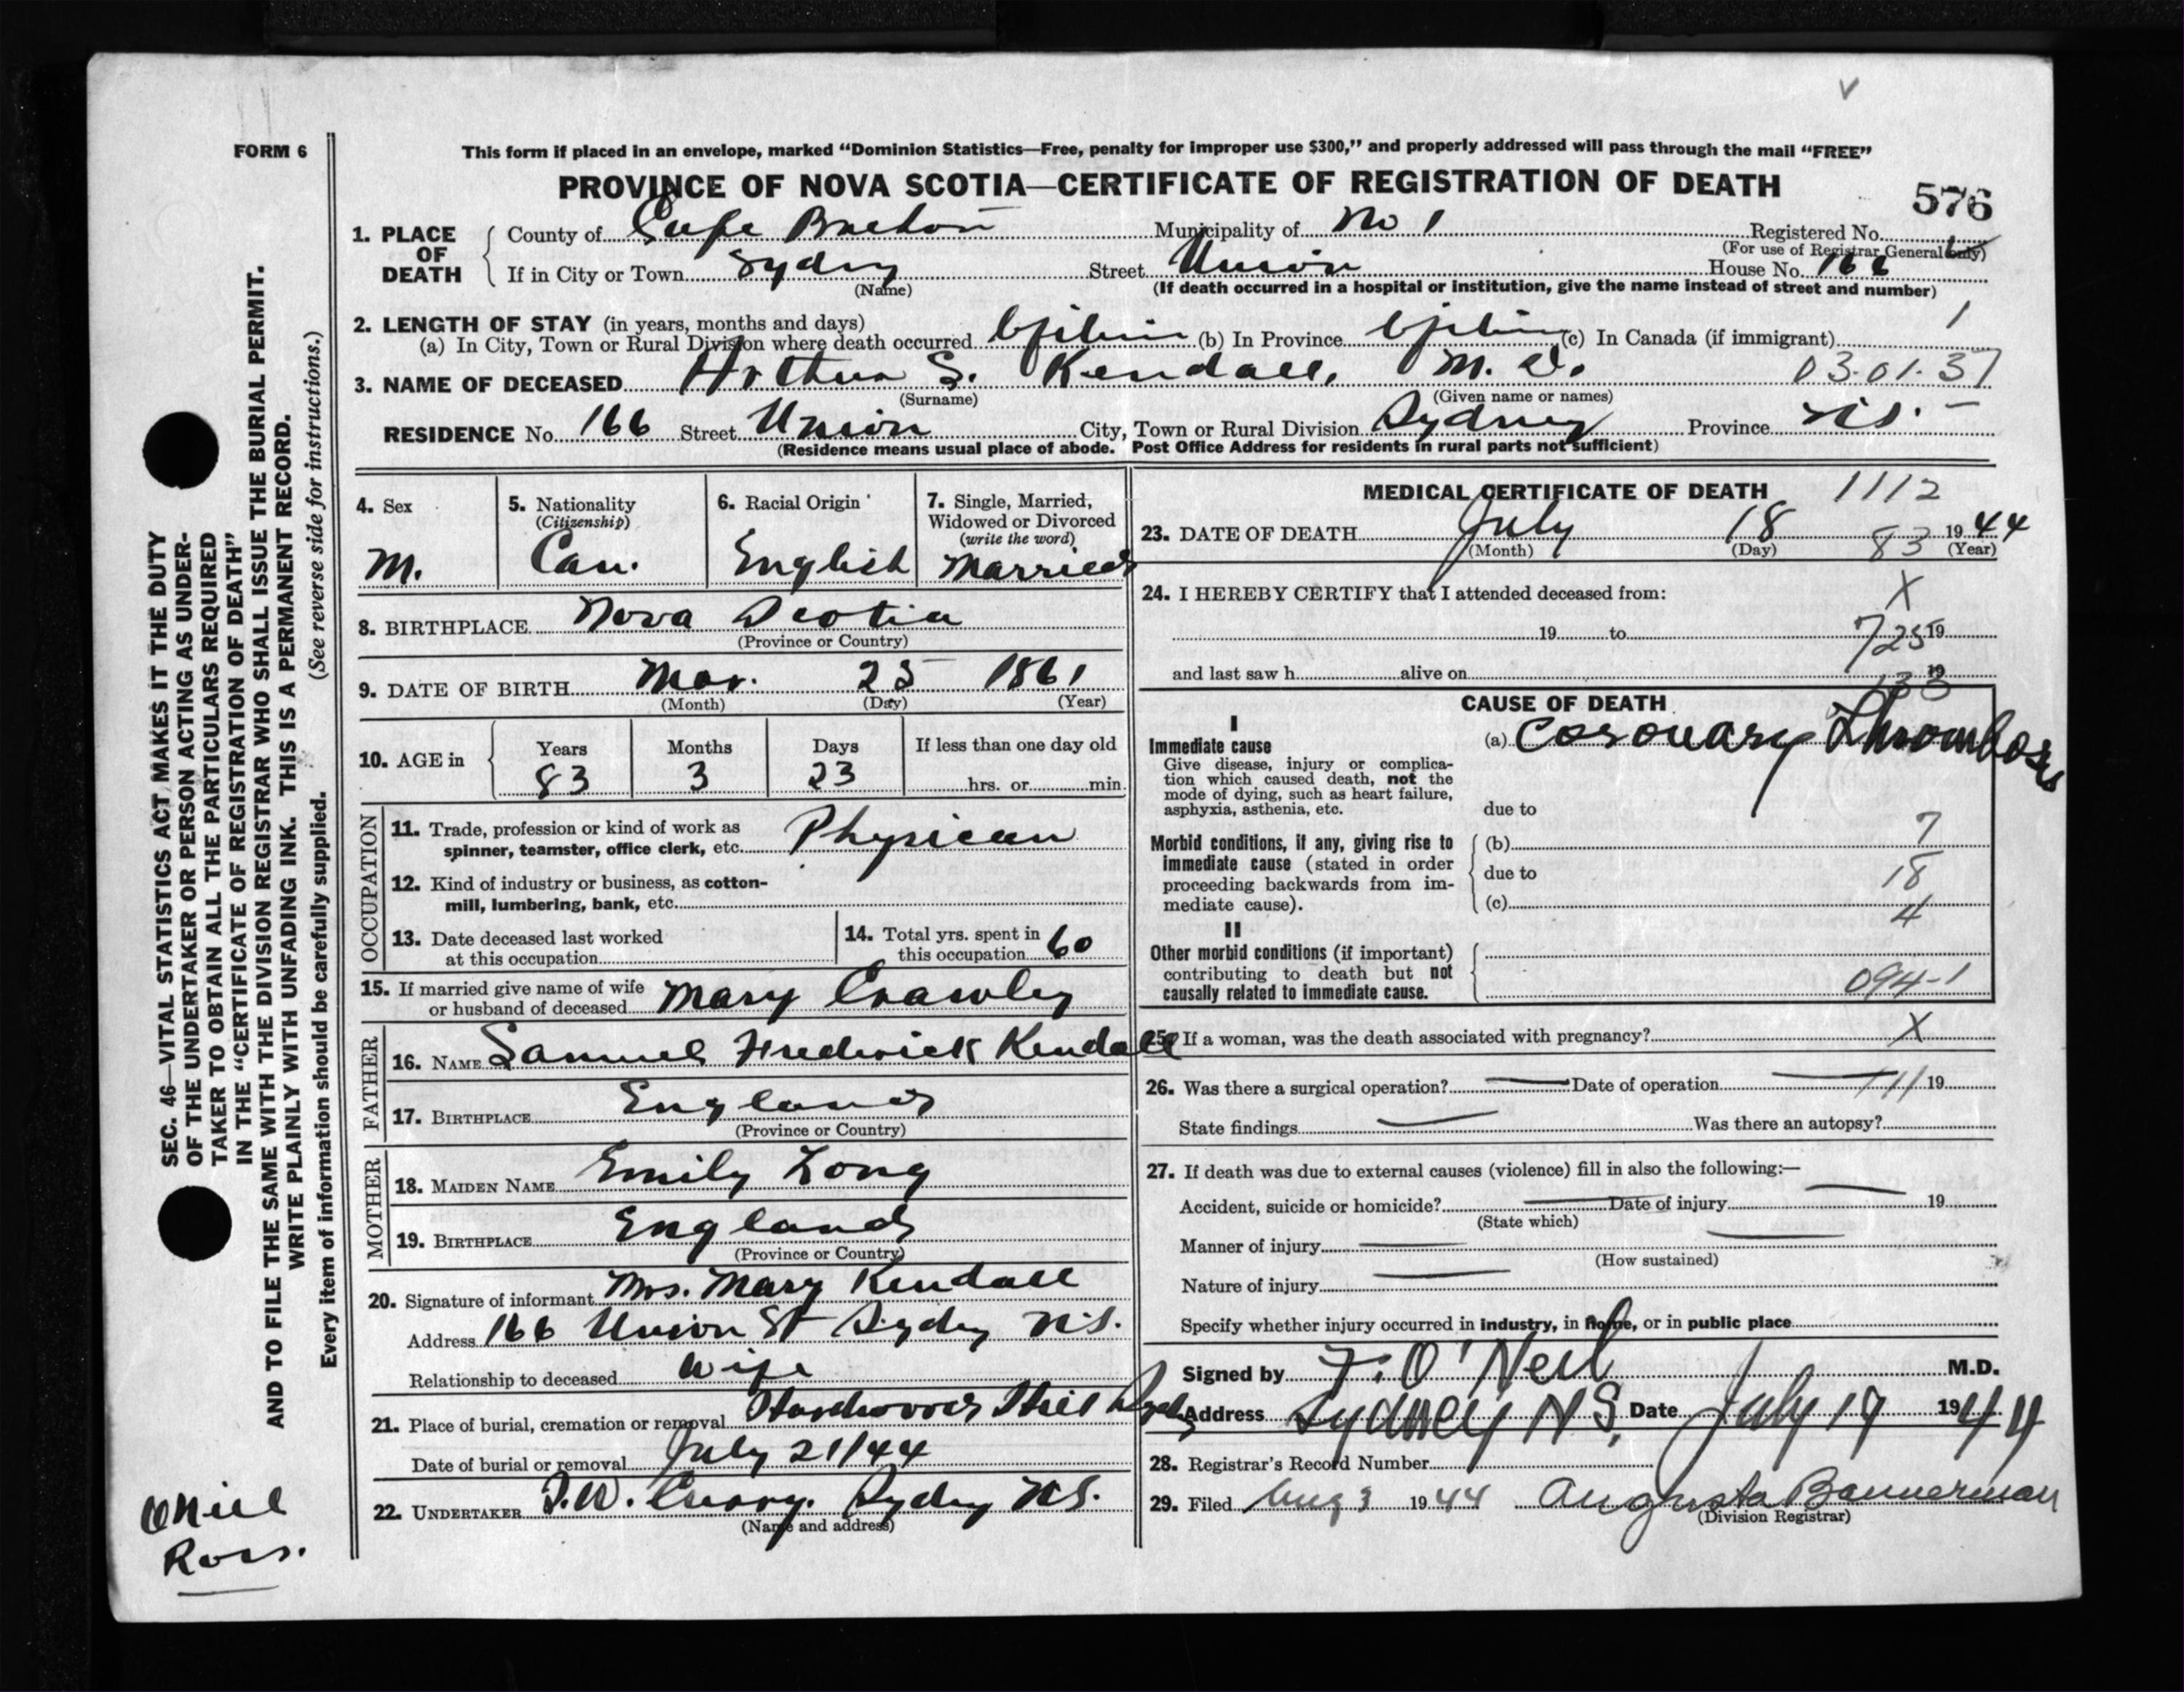 FORM 6
This form if placed in an envelope, marked “Dominion Statistics—Free, penalty for improper use $300,” and properly addressed will pass through the mail “FREE”
PROVINCE OF NOVA SCOTIA—CERTIFICATE OF REGISTRATION OF DEATH
576
1. PLACE OF DEATH
County of Cape Breton Municipality of No 1 Registered No.
(For use of Registrar General only)
If in City or Town Sydney Street Union House No. 166
(Name) (If death occurred in a hospital or institution, give the name instead of street and number)
2. LENGTH OF STAY (in years, months and days) 1
(a) In City, Town or Rural Division where death occurred (b) In Province (c) In Canada (if immigrant)
3. NAME OF DECEASED Arthur S. Kendall, M. D. 03.01.37
(Surname) (Given name or names)
RESIDENCE No. 166 Street Union City, Town or Rural Division Sydney Province N.S.
(Residence means usual place of abode. Post Office Address for residents in rural parts not sufficient)
4. Sex
M.
5. Nationality
(Citizenship)
Can.
6. Racial Origin
English
7. Single, Married,
Widowed or Divorced
(write the word)
Married
8. BIRTHPLACE Nova Scotia
(Province or Country)
9. DATE OF BIRTH Mar. 25 1861
(Month) (Day) (Year)
10. AGE in
Years Months Days If less than one day old
83 3 23 hrs. or min.
OCCUPATION
11. Trade, profession or kind of work as
spinner, teamster, office clerk, etc. Physican
12. Kind of industry or business, as cotton-
mill, lumbering, bank, etc.
13. Date deceased last worked
at this occupation
14. Total yrs. spent in
this occupation 60
15. If married give name of wife
or husband of deceased Mary Crawley
FATHER
16. NAME Samuel Frederick Kendall
17. BIRTHPLACE England
(Province or Country)
MOTHER
18. MAIDEN NAME Emily Long
19. BIRTHPLACE England
(Province or Country)
20. Signature of informant Mrs. Mary Kendall
Address 166 Union St Sydney N.S.
Relationship to deceased Wife
21. Place of burial, cremation or removal Hardwood Hill Sydney
Date of burial or removal July 21/44
22. UNDERTAKER Sydney N.S.
(Name and address)
MEDICAL CERTIFICATE OF DEATH 1112
23. DATE OF DEATH July 18 83 1944
(Month) (Day) (Year)
24. I HEREBY CERTIFY that I attended deceased from: X
19 to 725 19
and last saw h alive on 19
CAUSE OF DEATH
I
Immediate cause
Give disease, injury or complica-
tion which caused death, not the
mode of dying, such as heart failure,
asphyxia, asthenia, etc.
(a) Coronary Thrombosis
due to
Morbid conditions, if any, giving rise to
immediate cause (stated in order
proceeding backwards from im-
mediate cause).
(b) 7
due to 18
(c) 4
II
Other morbid conditions (if important)
contributing to death but not
causally related to immediate cause.
094-1
25. If a woman, was the death associated with pregnancy? X
26. Was there a surgical operation? Date of operation 111 19
State findings Was there an autopsy?
27. If death was due to external causes (violence) fill in also the following:—
Accident, suicide or homicide? Date of injury 19
(State which)
Manner of injury
(How sustained)
Nature of injury
Specify whether injury occurred in industry, in home, or in public place
Signed by F. O'Neil M.D.
Address Sydney N S. Date July 19 1944
28. Registrar's Record Number
29. Filed Aug 3 1944 Augusta Bannerman
(Division Registrar)
SEC. 46—VITAL STATISTICS ACT MAKES IT THE DUTY
OF THE UNDERTAKER OR PERSON ACTING AS UNDER-
TAKER TO OBTAIN ALL THE PARTICULARS REQUIRED
IN THE “CERTIFICATE OF REGISTRATION OF DEATH”
AND TO FILE THE SAME WITH THE DIVISION REGISTRAR WHO SHALL ISSUE THE BURIAL PERMIT.
WRITE PLAINLY WITH UNFADING INK. THIS IS A PERMANENT RECORD.
Every item of information should be carefully supplied. (See reverse side for instructions.)
ONiel
Ross.